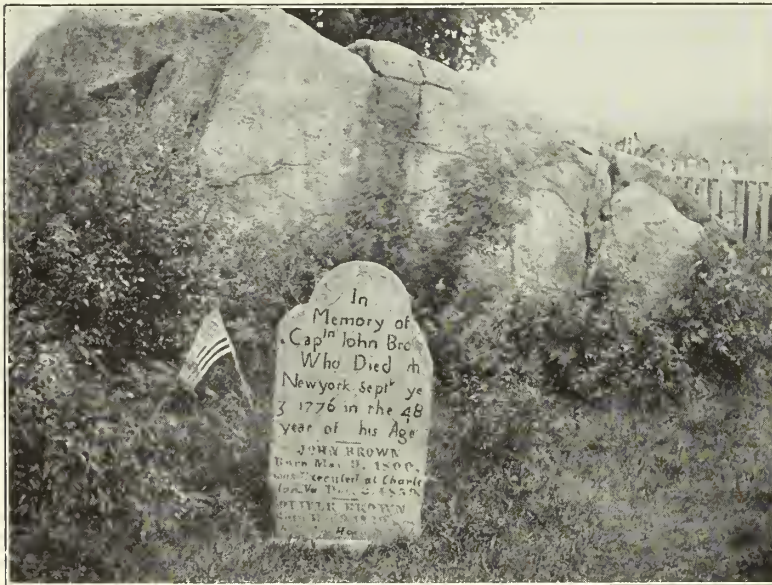 In
Memory of
Capᵗⁿ John Bro
Who Died
Newyork Septʳ ye
3 1776 in the 48
year of his Age
JOHN BROWN
Born May 9. 1800.
was Executed at Charles
ton, Va. Dec. 2. 1859.
OLIVER BROWN